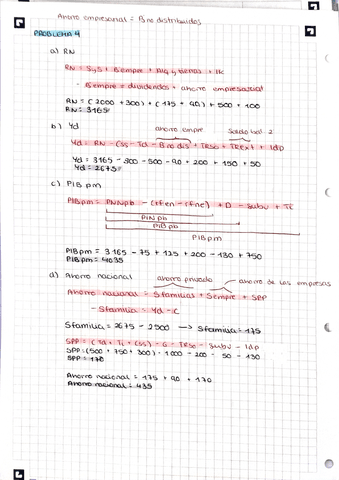 Ahorro empresarial = Bno distribuidos
PROBLEMA 4
a) RN
RN = SyS + Bempre + Alq y tienras + IK
- Bempre = dividendos + ahorro empresarial
RN = (2000 + 300) + (175 + 90) + 500 + 100
RN = 3165
b) Yd
ahorro empre
Saldo bal 2
Yd = RN - Css - Td - Bno dis + TRSo + TREXT + Idp
Yd = 3165 - 300 - 500 - 90 + 200 + 150 + 50
Yd = 2675
c) PIB pm
PIBpm = PNNpb - (rfen - rfne) + D - Subv + Ti
PINpb
PIBpb
PIBpm
PIBpm = 3165 - 75 + 125 + 200 - 130 + 750
PIBpm = 4035
d) Ahorro nacional
ahorro privado
ahorro de las empresas
Ahorro nacional = Sfamilias + Sempre + SPP
- Sfamilia = Yd - C
Sfamilia = 2675 - 2500 → Sfamilia = 175
SPP = (Td + Ti + Css) - G - TRSo - Subv - Idp
SPP = (500 + 750 + 300) - 1000 - 200 - 50 - 130
SPP = 170
Ahorro nacional = 175 + 90 + 170
Ahorro nacional = 435